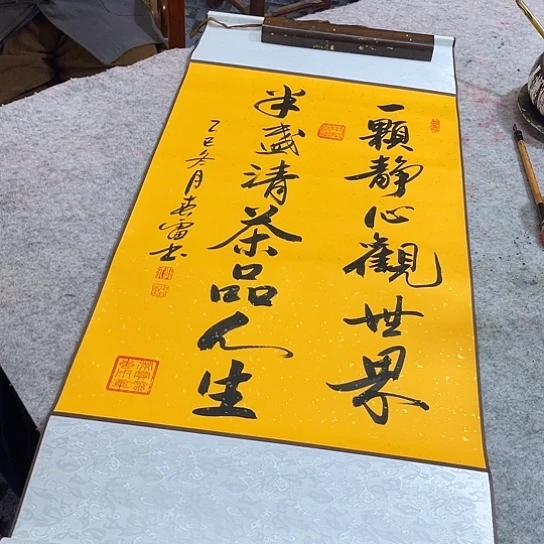 一顆静心觀世界
半盞清茶品人生
乙巳冬月春雷书